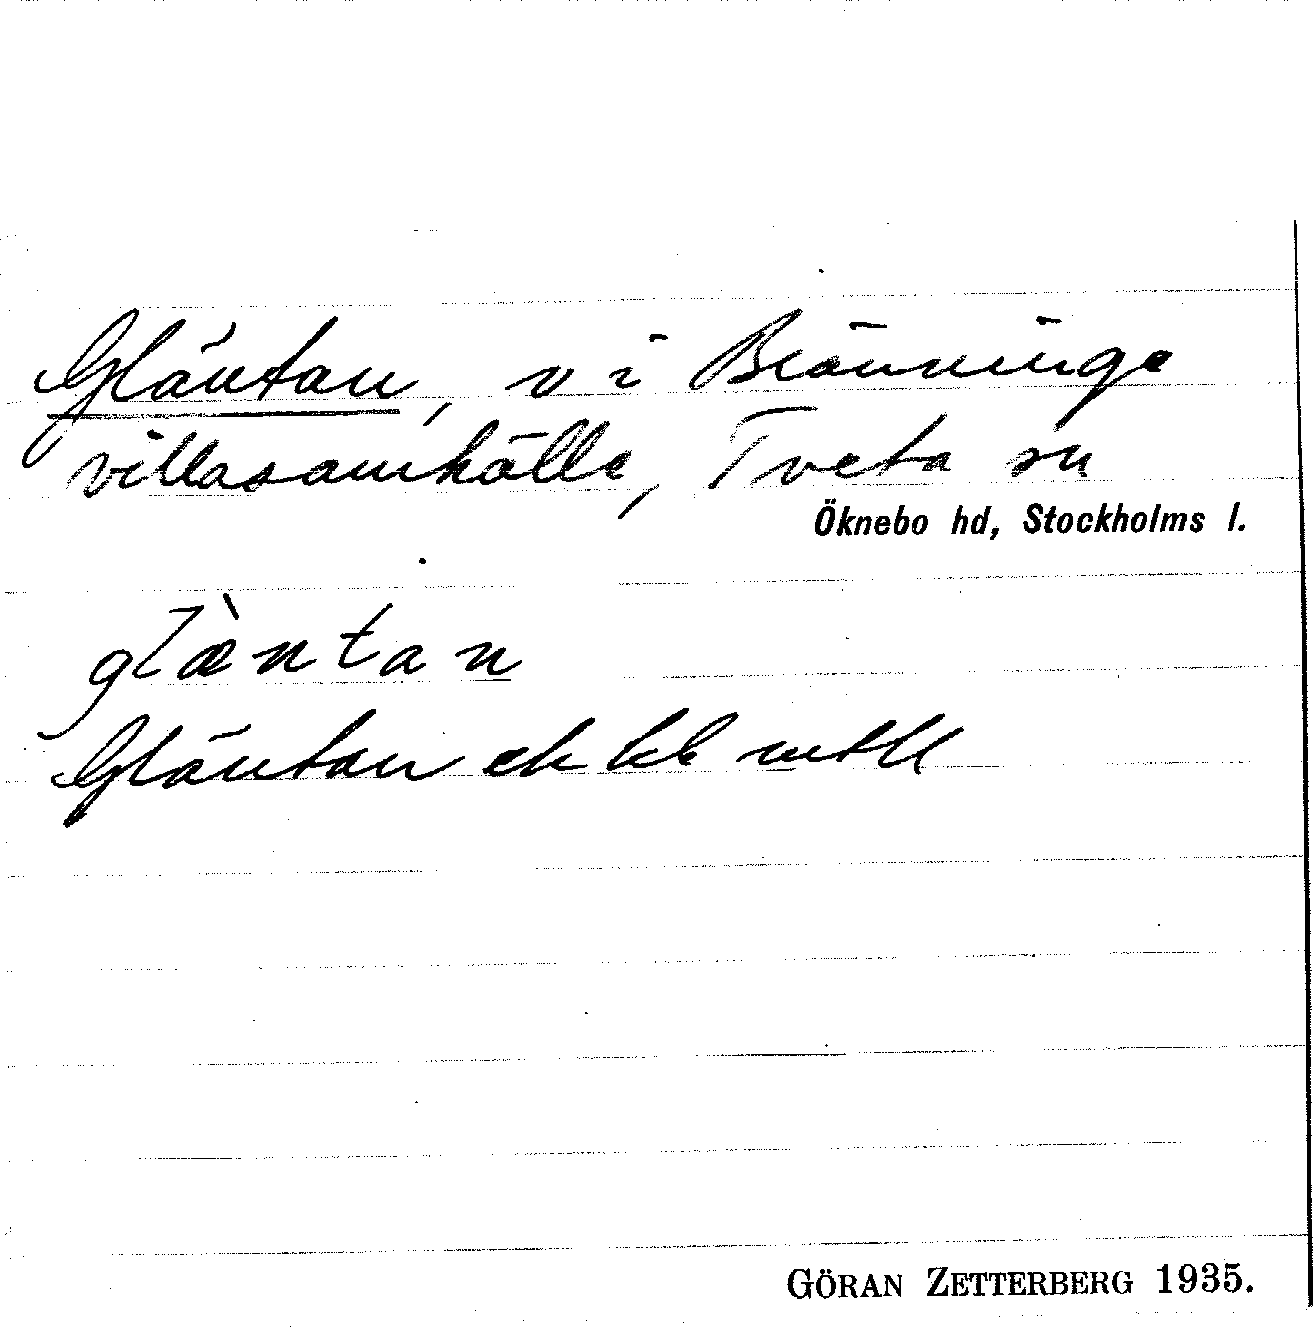 Gläntan, v i Bränninge
villasamhälle, Tveta sn
Öknebo hd, Stockholms l.
glæ̀ntan
Gläntan ek kb mtl
GÖRAN ZETTERBERG 1935.